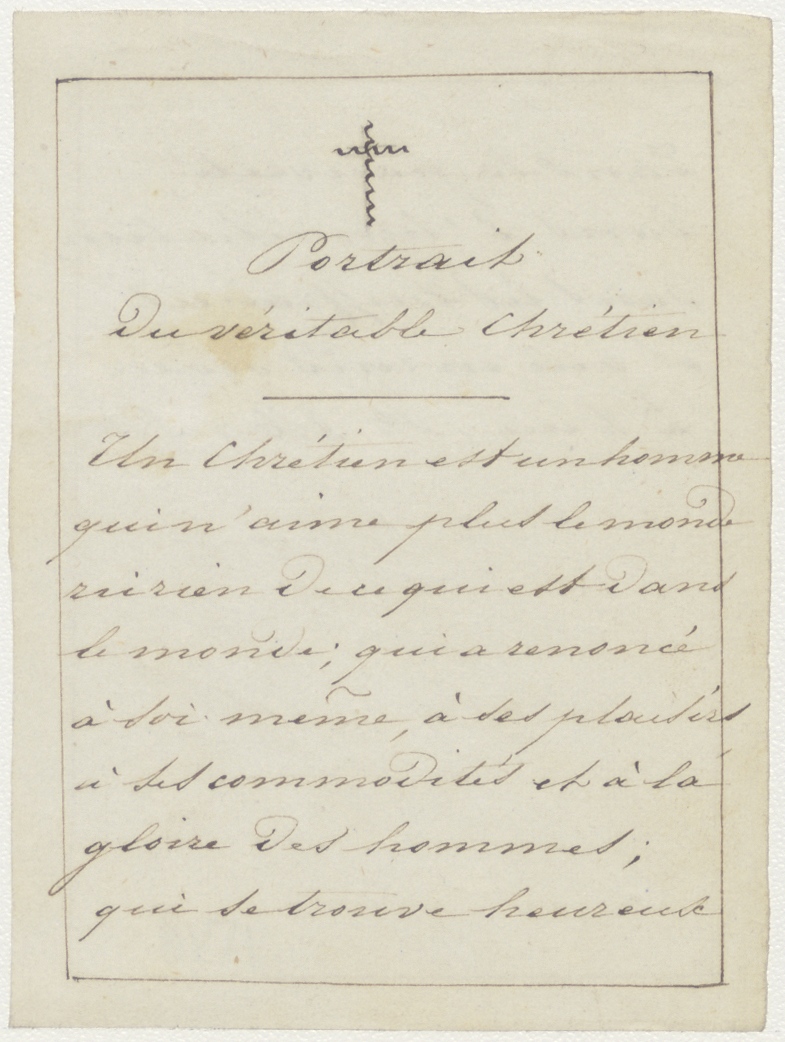 Portrait
Du véritable Chrétien
Un Chrétien est un homme
qui n'aime plus le monde
ni rien De ce qui est Dans
le monde; qui a renoncé
à soi même, à ses plaisirs
à ses commodités et à la
gloire Des hommes;
qui se trouve heureux